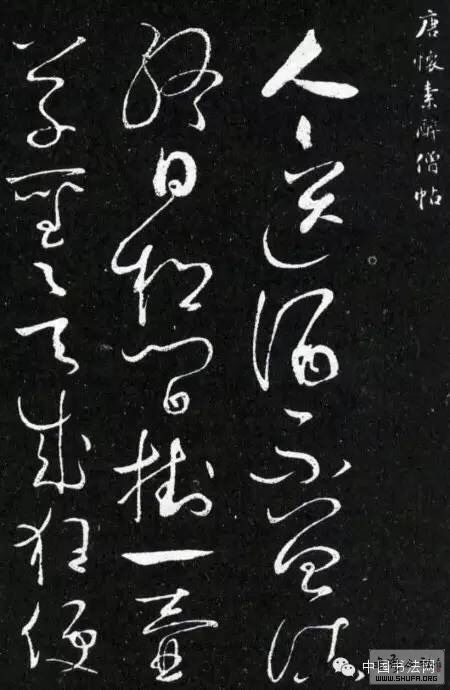 唐懷素醉僧帖
人人送酒不曾沽
終日松間掛一壺
草聖欲成狂便
中国书法网
WWW.SHUFA.ORG